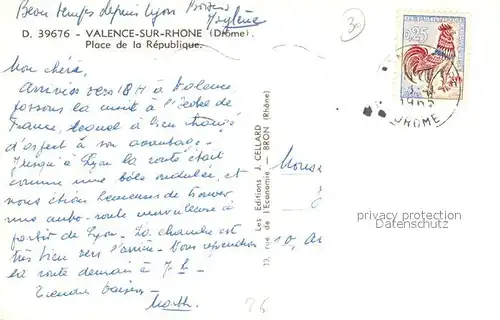 Beau temps depuis Lyon Bons
30
D. 39676 - VALENCE-SUR-RHONE (Drôme).
Place de la République.
Mon chéri,
Arrivés vers 18 H à Valence,
passons la nuit à l'écu de
France, lequel a bien changé
d'aspect à son avantage -
Jusqu'à Lyon la route était
comme une tôle ondulée, et
nous étions heureux de trouver
une auto-route merveilleuse à
partir de Lyon - La chambre est
très bien vers l'arrière - Nous reprendrons
la route demain à 7 h -
Tendres baisers -
Les Editions J. CELLARD
13, rue de l'Economie - BRON (Rhône)
0,25
DROME
10, A
26
privacy protection
Datenschutz